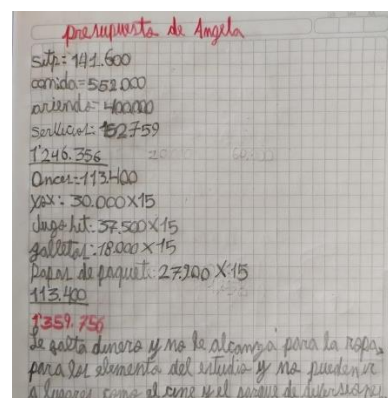 presupuesto de Angela
sitp: 141.600
comida = 552.000
ariendo = 400000
servicios: 152759
1'246.356
Onces: 113.400
yox: 30.000 X 15
Jugo hit: 37.500 X 15
galletas: 18.000 X 15
papas de paquete: 27.900 X 15
113.400
1'359.756
le falta dinero y no le alcanza para la ropa,
para los elementos del estudio y no pueden ir
a lugares como el cine y el parque de diversiones